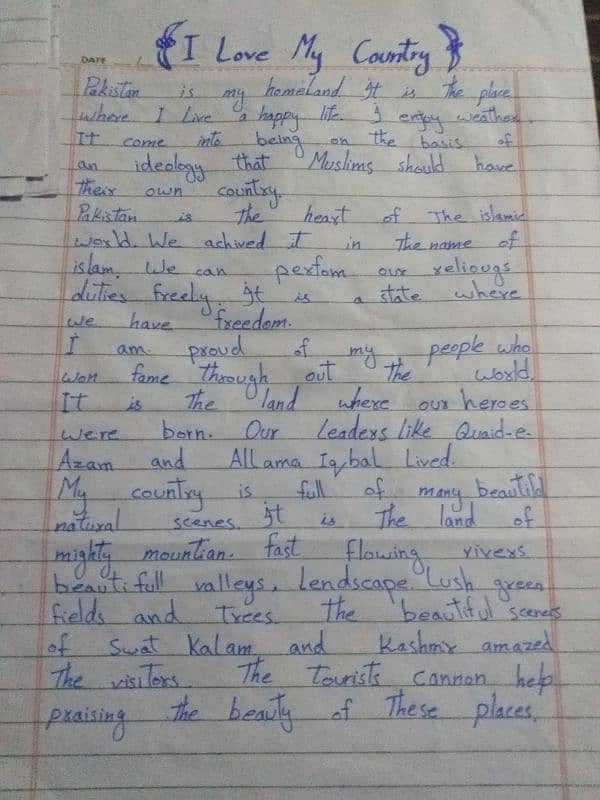 DATE
{I Love My Country}
Pakistan is my homeland. It is the place
where I Live a happy life. I enjoy weather.
It come into being on the basis of
an ideology that Muslims should have
their own country.
Pakistan is the heart of The islamic
world. We achived it in the name of
islam. We can perfom our reliougs
duties freely. It is a state where
we have freedom.
I am proud of my people who
won fame through out the world.
IT is the land where our heroes
were born. Our Leaders like Quaid-e-
Azam and Allama Iqbal Lived.
My country is full of many beautifd
natural scenes. It is The land of
mighty mountian. fast flowing rivers
beautifull valleys, lendscape. Lush green
fields and Trees. The beautiful scenes
of Swat Kalam and Kashmir amazed
The visitors. The Tourists Cannon help
praising the beauty of These places.